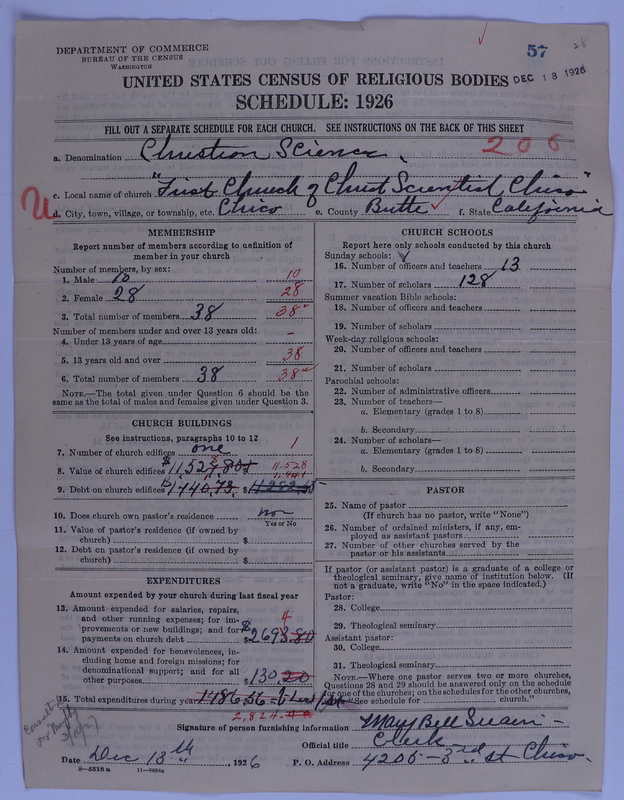 DEPARTMENT OF COMMERCE
BUREAU OF THE CENSUS
WASHINGTON
57
28
UNITED STATES CENSUS OF RELIGIOUS BODIES
DEC 18 1926
SCHEDULE: 1926
FILL OUT A SEPARATE SCHEDULE FOR EACH CHURCH. SEE INSTRUCTIONS ON THE BACK OF THIS SHEET
a. Denomination Christian Science. 206
c. Local name of church "First Church of Christ Scientist Chico"
d. City, town, village, or township, etc. Chico e. County Butte f. State California
MEMBERSHIP
Report number of members according to definition of
member in your church
Number of members, by sex:
1. Male 10 10
2. Female 28 28
3. Total number of members 38 38
Number of members under and over 13 years old:
4. Under 13 years of age –
5. 13 years old and over 38
6. Total number of members 38 38
NOTE.—The total given under Question 6 should be
same as the total of males and females given under Question 3.
CHURCH BUILDINGS
See instructions, paragraphs 10 to 12
7. Number of church edifices one 1
8. Value of church edifices $11,527.80 11,528
9. Debt on church edifices $1440.73
10. Does church own pastor's residence no
Yes or No
11. Value of pastor's residence (if owned by
church) $
12. Debt on pastor's residence (if owned by
church) $
EXPENDITURES
Amount expended by your church during last fiscal year
13. Amount expended for salaries, repairs,
and other running expenses; for im-
provements or new buildings; and for
payments on church debt $2693.80 4
14. Amount expended for benevolences, in-
cluding home and foreign missions; for
denominational support; and for all
other purposes $130.20
15. Total expenditures during year
2,824
CHURCH SCHOOLS
Report here only schools conducted by this church
Sunday schools:
16. Number of officers and teachers 13
17. Number of scholars 128
Summer vacation Bible schools:
18. Number of officers and teachers
19. Number of scholars
Week-day religious schools:
20. Number of officers and teachers
21. Number of scholars
Parochial schools:
22. Number of administrative officers
23. Number of teachers—
a. Elementary (grades 1 to 8)
b. Secondary
24. Number of scholars—
a. Elementary (grades 1 to 8)
b. Secondary
PASTOR
25. Name of pastor
(If church has no pastor, write "None")
26. Number of ordained ministers, if any, em-
ployed as assistant pastors
27. Number of other churches served by the
pastor or his assistants
If pastor (or assistant pastor) is a graduate of a college or
theological seminary, give name of institution below. (If
not a graduate, write "No" in the space indicated.)
Pastor:
28. College
29. Theological seminary
Assistant pastor:
30. College
31. Theological seminary
NOTE.—Where one pastor serves two or more churches,
Questions 28 and 29 should be answered only on the schedule
for one of the churches; on the schedules for the other churches,
"See schedule for church."
Signature of person furnishing information Mary Bell
Official title Clerk
Date Dec 13th, 1926 P. O. Address 420 5 – 3rd St Chico.
8—5518 a